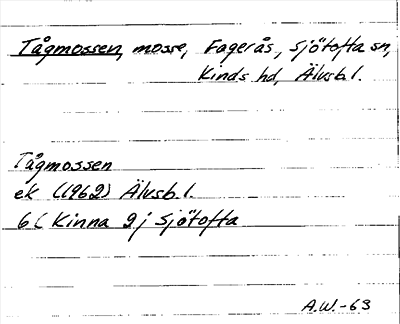 Tågmossen, mosse, Fagerås, Sjötofta sn,
Kinds hd, Älvsb.l.
Tågmossen
ek (1962) Älvsb.l.
6C Kinna 2j Sjötofta
A.W.-63